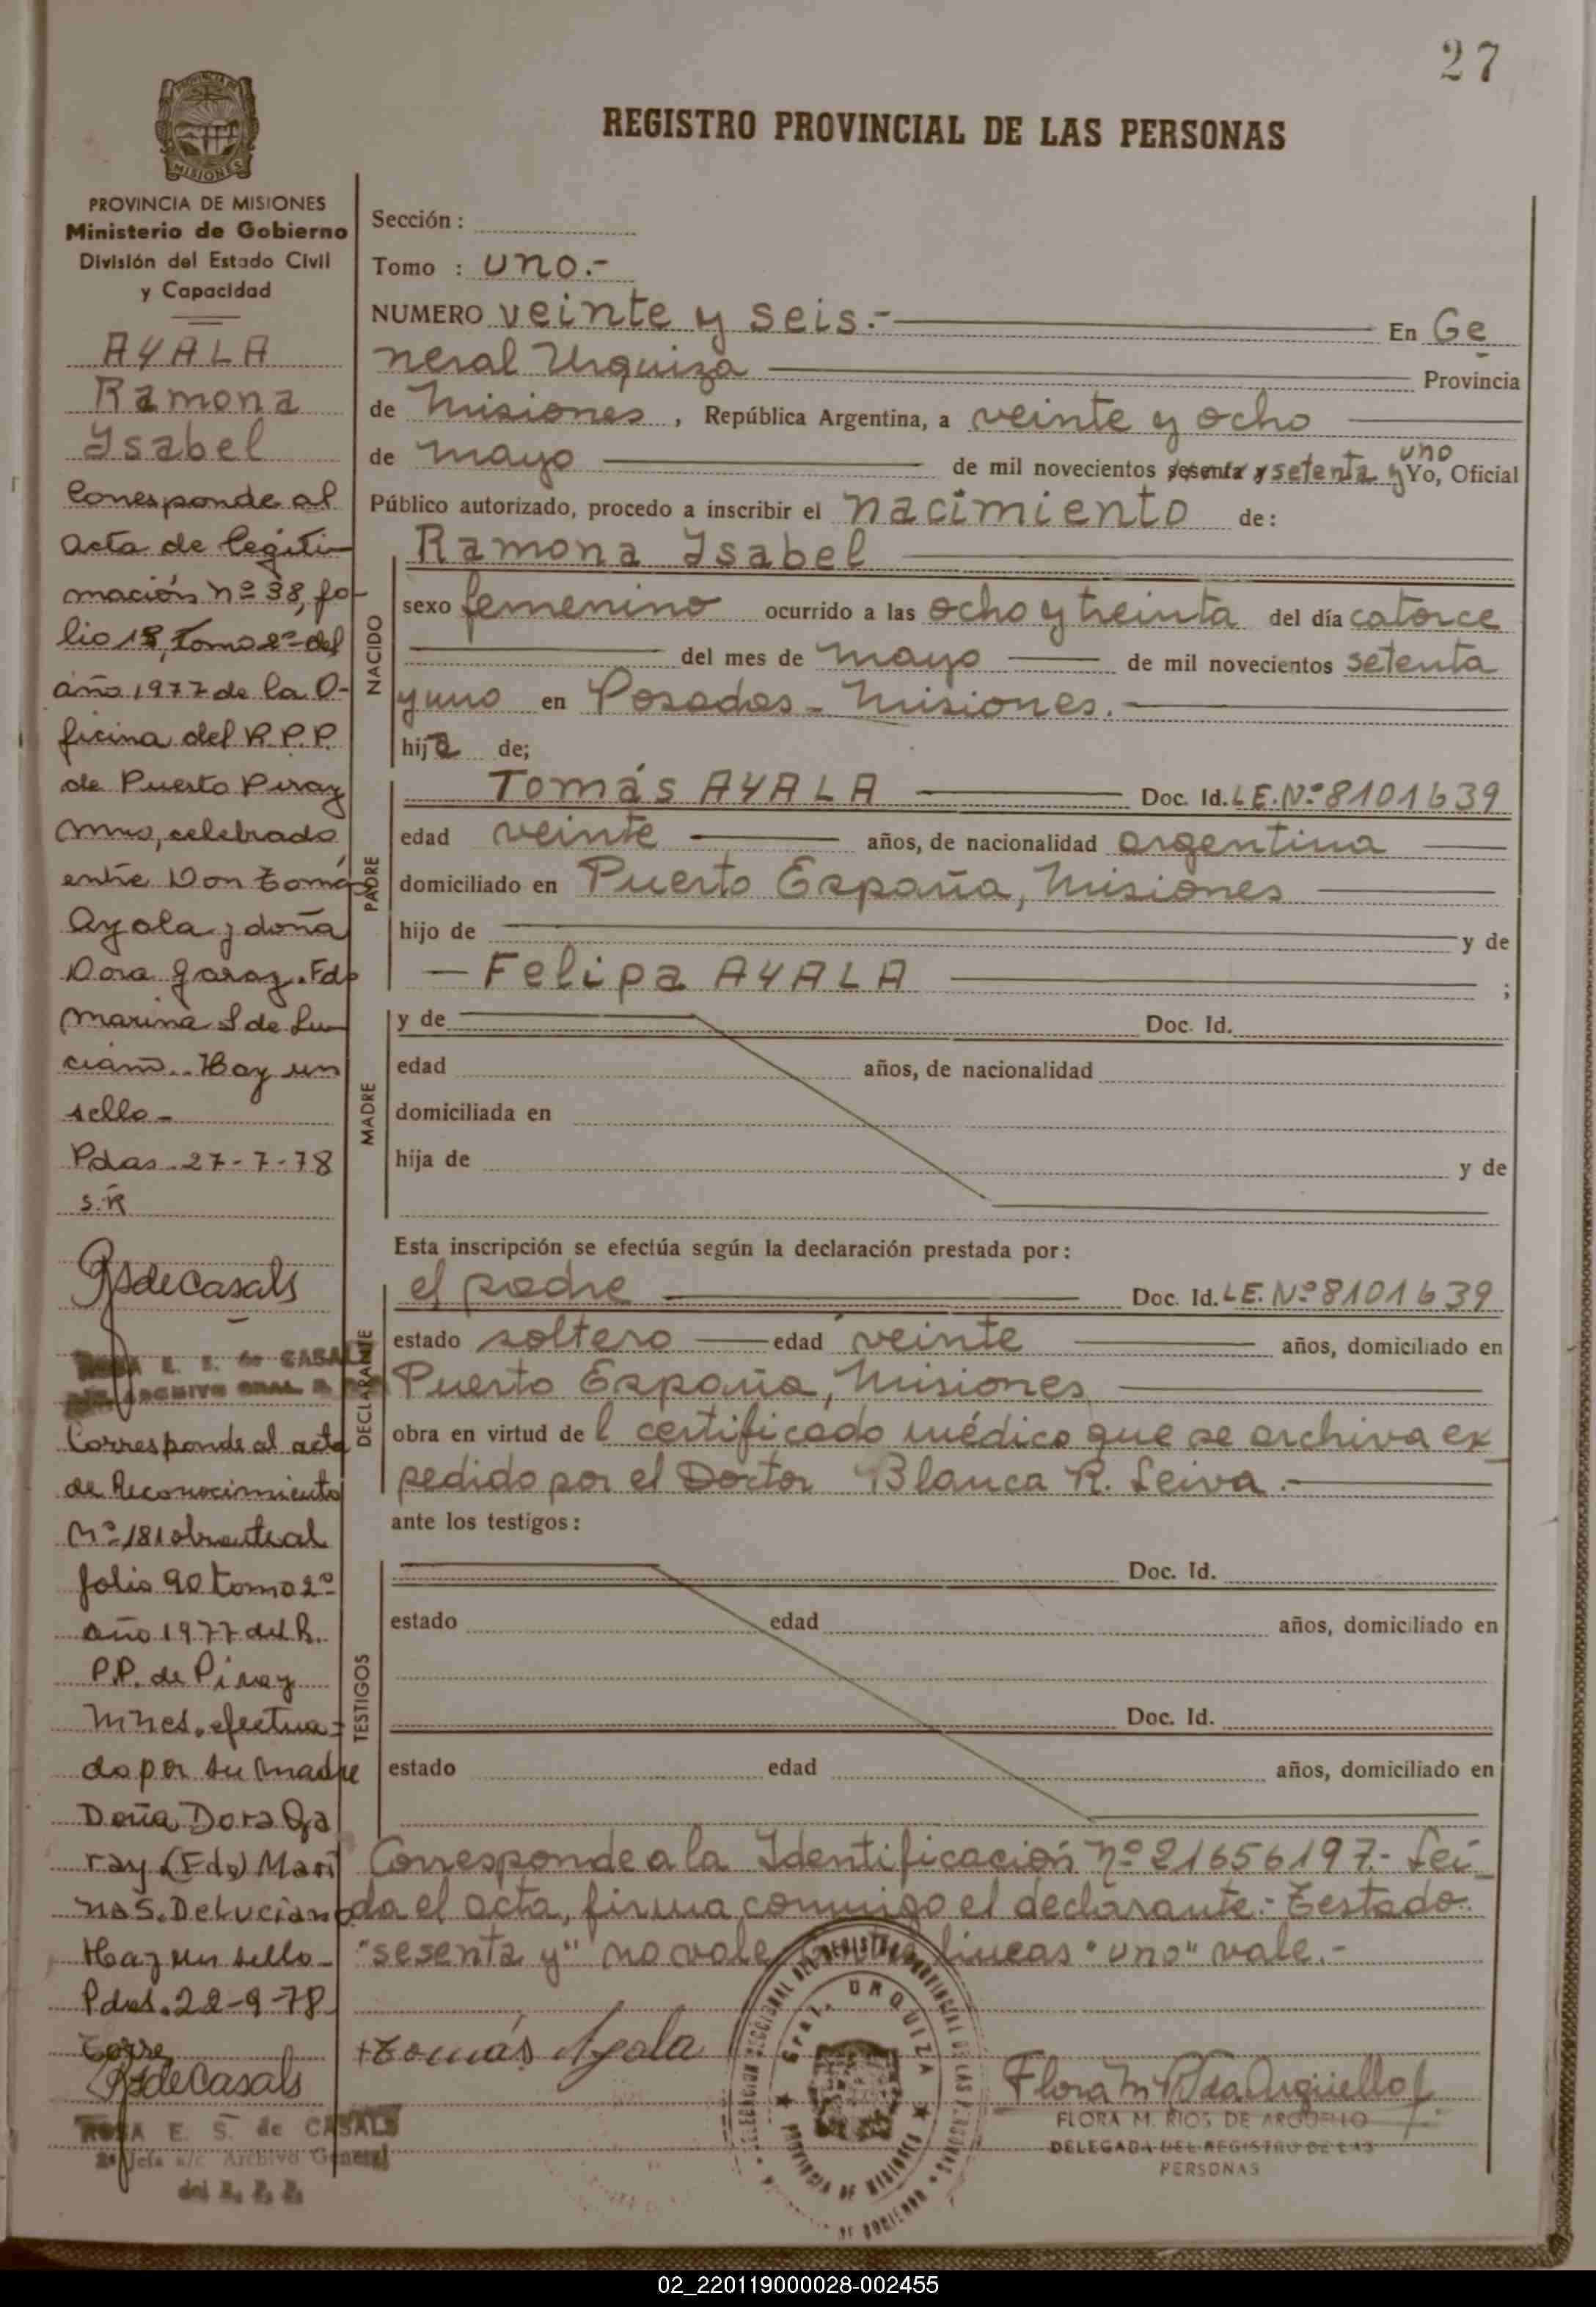 27
REGISTRO PROVINCIAL DE LAS PERSONAS
PROVINCIA DE MISIONES
Ministerio de Gobierno
División del Estado Civil
y Capacidad
AYALA
Ramona
Isabel
Corresponde al
acta de legiti-
mación nº 38, fo-
lio 18, Tomo 2º del
año 1977 de la O-
ficina del R.P.P.
de Puerto Piray
Mnes, celebrado
entre Don Tomás
Ayala y doña
Dora Garay. Fdo
Marina S de Lu-
ciano. Hay un
sello-
Pdas. 27-7-78
S.R
RSdeCasals
ROSA E. S. de CASALS
ARCHIVO GRAL.
Corresponde al acta
de Reconocimiento
Nº 181 obrante al
folio 90 tomo 2º
año 1977 del R.
P.P. de Piray
Mnes. efectua-
do por su madre
Doña Dora Ga
ray (Fdo) Mari
na S. De Luciano
Hay un sello-
Pdas. 22-9-78
Torre
RSdeCasals
ROSA E. S. de CASALS
2ª Jefa a/c Archivo General
del R. P. P.
Sección :
Tomo : uno.-
NUMERO veinte y seis.- En Ge
neral Urquiza Provincia
de Misiones, República Argentina, a veinte y ocho
de mayo de mil novecientos sesenta y setenta y uno Yo, Oficial
Público autorizado, procedo a inscribir el nacimiento de:
Ramona Isabel
NACIDO
sexo femenino ocurrido a las ocho y treinta del día catorce
del mes de mayo de mil novecientos setenta
y uno en Posadas - Misiones.
hija de;
PADRE
Tomás AYALA Doc. Id. LE. Nº 8101639
edad veinte años, de nacionalidad argentina
domiciliado en Puerto España, Misiones
hijo de y de
- Felipa AYALA ;
MADRE
y de Doc. Id.
edad años, de nacionalidad
domiciliada en
hija de y de
Esta inscripción se efectúa según la declaración prestada por:
DECLARANTE
el padre Doc. Id. LE. Nº 8101639
estado soltero edad veinte años, domiciliado en
Puerto España, Misiones
obra en virtud del certificado médico que se archiva ex
pedido por el Doctor Blanca R. Leiva.-
ante los testigos:
TESTIGOS
Doc. Id.
estado edad años, domiciliado en
Doc. Id.
estado edad años, domiciliado en
Corresponde a la Identificación nº 21656197.- Leí
da el acta, firma conmigo el declarante.- Testado:
"sesenta y" no vale líneas "uno" vale.-
Tomás Ayala
Gral. URQUIZA
PROVINCIA DE MISIONES
Flora M R de Argüello
FLORA M. RIOS DE ARGUELLO
DELEGADA DEL REGISTRO DE LAS
PERSONAS
02_220119000028-002455